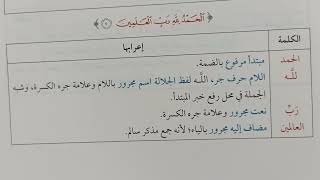 ﴿الْحَمْدُ لِلَّهِ رَبِّ الْعَالَمِينَ ۝﴾
الكلمة إعرابها
الحمد مبتدأ مرفوع بالضمة.
للَّـه اللام حرف جر، اللَّـه لفظ الجلالة اسم مجرور باللام وعلامة جره الكسرة، وشبه
الجملة في محل رفع خبر المبتدأ.
رَبِّ نعت مجرور وعلامة جره الكسرة.
العالمين مضاف إليه مجرور بالياء؛ لأنه جمع مذكر سالم.